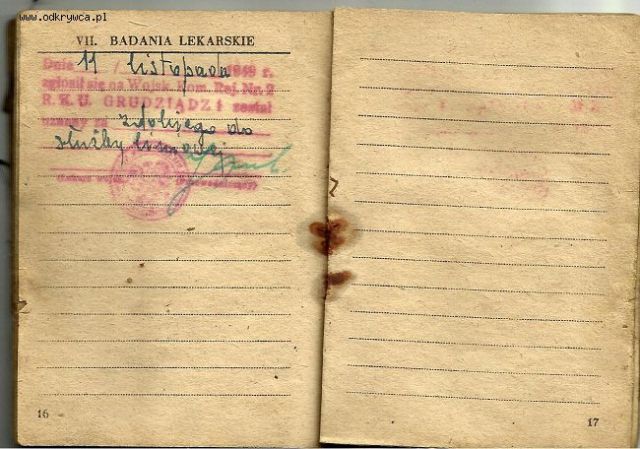 www.odkrywca.pl
VII. BADANIA LEKARSKIE
Dnia 11 listopada 1949 r.
zgłosił się na Wojsk. Kom. Rej. Nr. 2
R. K. U. GRUDZIĄDZ i został
uznany za zdolnego do
służby liniowej
16
17